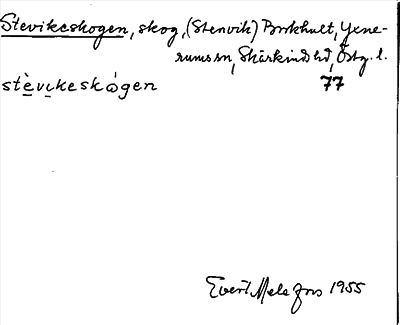 Stevikeskogen, skog, (Stenvik) Borkhult, Yxne-
rums sn, Skärkinds hd, Östg. l.
stèvikeskógen 77
Evert Melefors 1955